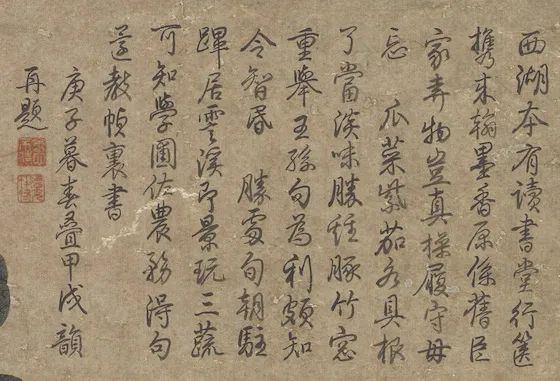 西湖夲有讀書堂行篋
攜来翰墨香原係舊臣
家弆物豈真操履守毋
忘 瓜菜紫茄各具根
了當淡味勝烝豚竹窓
重舉王孫句為利頗知
令智昏 勝處旬朝駐
蹕居雲溪即景玩三蔬
可知學圃佐農務得句
還教幀裏書
庚子暮春疊甲戌韻
再題